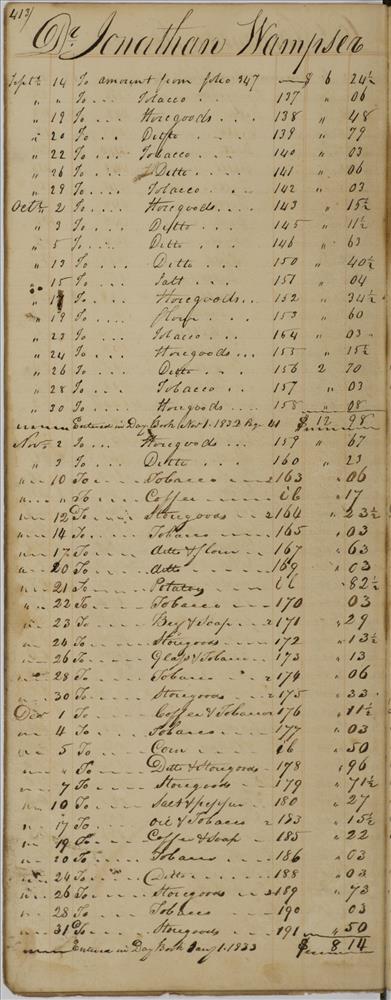 413/
Dr Jonathan Wampser
Septr 14 To amount from folio 347 — $ 6 24½
" " To ... Tobacco .. 137 " 06
" 19 To ... Storegoods ... 138 " 48
" 20 To ... Ditto ... 139 " 79
" 22 To .... Tobacco .... 140 " 03
" 26 To ... Ditto .... 141 " 06
" 29 To .... Tobacco ... 142 " 03
Octr 2 To .... Storegoods .... 143 " 15½
" 3 To .... Ditto .... 145 " 11½
" 5 To .... Ditto ... 146 " 63
" 13 To .... Ditto .... 150 " 40½
" 15 To .... Salt ... 151 " 04
" 17 To .... Storegoods ... 152 " 34½
" 19 To .... flour ... 153 " 60
" 23 To .... Tobacco ... 154 " 03
" 24 To .... Storegoods ... 155 " 15½
" 26 To .... Ditto ... 156 2 70
" 28 To .... Tobacco .. 157 " 03
" 30 To .... Storegoods ... 158 " 08
Entered in Day Book Nov 1. 1832 Pg. $ 12 98
Nov 2 To ... Storegoods ... 159 " 67
" 3 To ... Ditto ... 160 " 23
" 10 To — Tobacco — 163 " 06
" " To — Coffee — ib " 17
" 12 To — Storegoods — 164 " 23½
" 14 To — Tobacco — 165 " 03
" 17 To — ditto & flour — 167 " 63
" 20 To — ditto — 169 " 03
" 21 To — Potatoes — ib " 82½
" 22 To — Tobacco — 170 03
" 23 To — & Soap — 171 " 29
" 24 To — Storegoods — 172 " 13½
" 26 To — Glass & Tobacco — 173 " 13
" 28 To — Tobacco — 174 " 06
" 30 To — Storegoods — 175 " 33
Dec 1 To — Coffee & Tobacco 176 " 11½
" 4 To — Tobacco — 177 " 03
" 5 To — Corn — ib " 50
" " To — Ditto & Storegoods — 178 " 96
" 7 To — Storegoods — 179 " 71½
" 10 To — Salt & pepper — 180 " 27
" 17 To — oil & Tobacco — 183 " 15½
" 19 To — Coffee & Soap — 185 " 22
" 20 To — Tobacco — 186 " 03
" 24 To — Ditto — 188 " 03
" 26 To — Storegoods — 189 " 73
" 28 To — Tobacco — 190 03
" 31 To — Storegoods — 191 " 50
Entered in Day Book Jany 1. 1833 $ 8 14